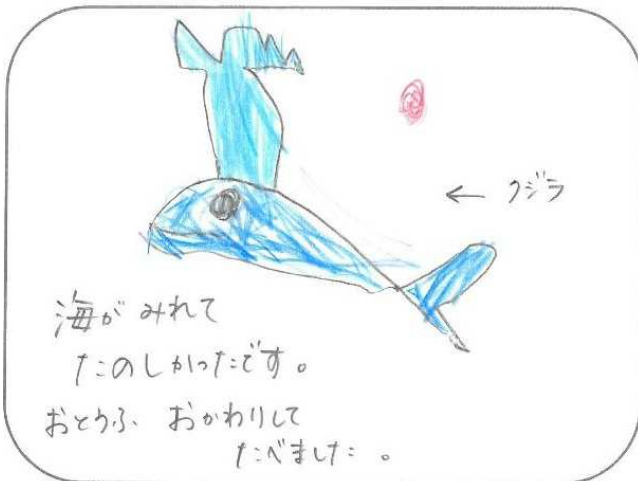 ← クジラ
海がみれて
たのしかったです。
おとうふ おかわりして
たべました。